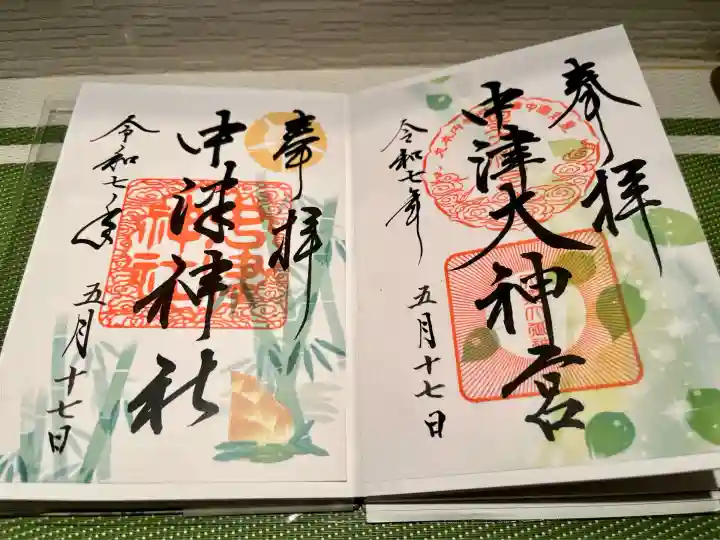 奉拝
中津神社
令和七年
五月十七日
奉拝
中津大神宮
令和七年
五月十七日